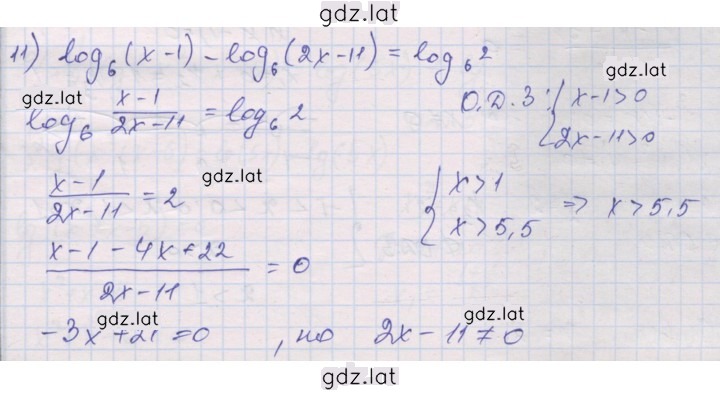 gdz.lat
11) log₆(x-1) - log₆(2x-11) = log₆2
gdz.lat
gdz.lat
log₆ (x-1)/(2x-11) = log₆2
О.Д.З: { x-1>0
2x-11>0
gdz.lat
(x-1)/(2x-11) = 2
{ x>1
x>5,5 ⇒ x>5,5
(x-1-4x+22)/(2x-11) = 0
gdz.lat
gdz.lat
-3x+21=0, но 2x-11≠0
gdz.lat